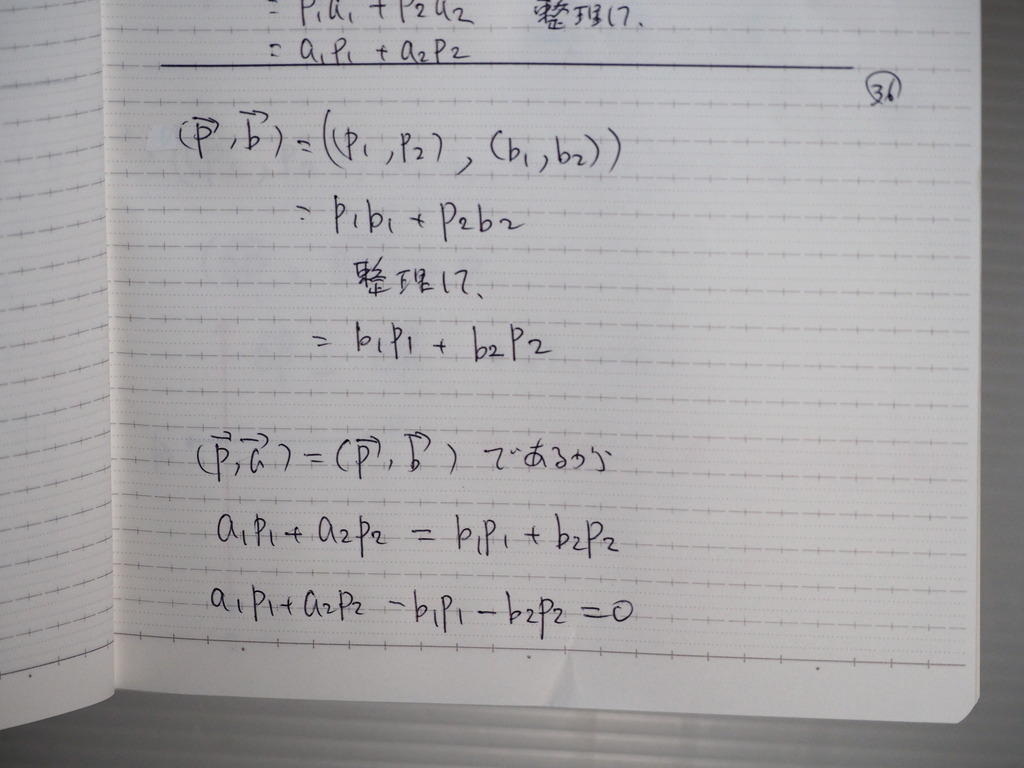 = p₁a₁ + p₂a₂ 整理して、
= a₁p₁ + a₂p₂
36
(p⃗, b⃗) = ((p₁, p₂), (b₁, b₂))
= p₁b₁ + p₂b₂
整理して、
= b₁p₁ + b₂p₂
(p⃗, a⃗) = (p⃗, b⃗) であるから
a₁p₁ + a₂p₂ = b₁p₁ + b₂p₂
a₁p₁ + a₂p₂ − b₁p₁ − b₂p₂ = 0